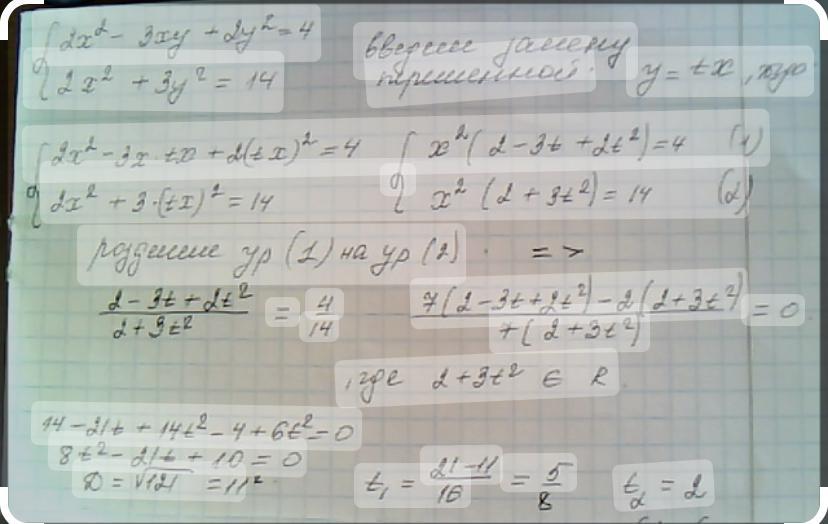 2x² - 3xy + 2y² = 4
введем замену
2x² + 3y² = 14
переменной. y = tx, тогда
2x² - 3x·tx + 2(tx)² = 4    x²(2 - 3t + 2t²) = 4    (1)
2x² + 3·(tx)² = 14    x²(2 + 3t²) = 14    (2)
ур (1) на ур (2) . =>
2 - 3t + 2t² / 2 + 3t² = 4/14    7(2 - 3t + 2t²) - 2(2 + 3t²) / 7(2 + 3t²) = 0
, где 2 + 3t² ∈ R.
14 - 21t + 14t² - 4 + 6t² = 0
8t² - 21t + 10 = 0
D = √121 = 11²    t₁ = 21 - 11 / 16 = 5/8    t₂ = 2